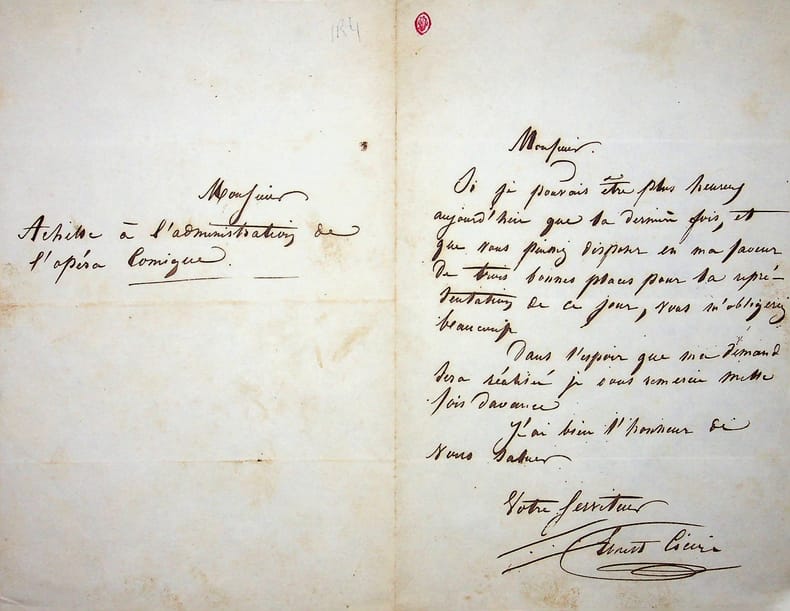 Monsieur
Achille à l'administration de
l'opéra Comique.
Monsieur.
Si je pouvais être plus heureux
aujourd'hui que la dernière fois, et
que vous puissiez disposer en ma faveur
de trois bonnes places pour la repré-
sentation de ce jour, vous m'obligeriez
beaucoup
Dans l'espoir que ma demande
sera réalisée je vous remercie mille
fois davance
J'ai bien l'honneur de
vous saluer
Votre serviteur